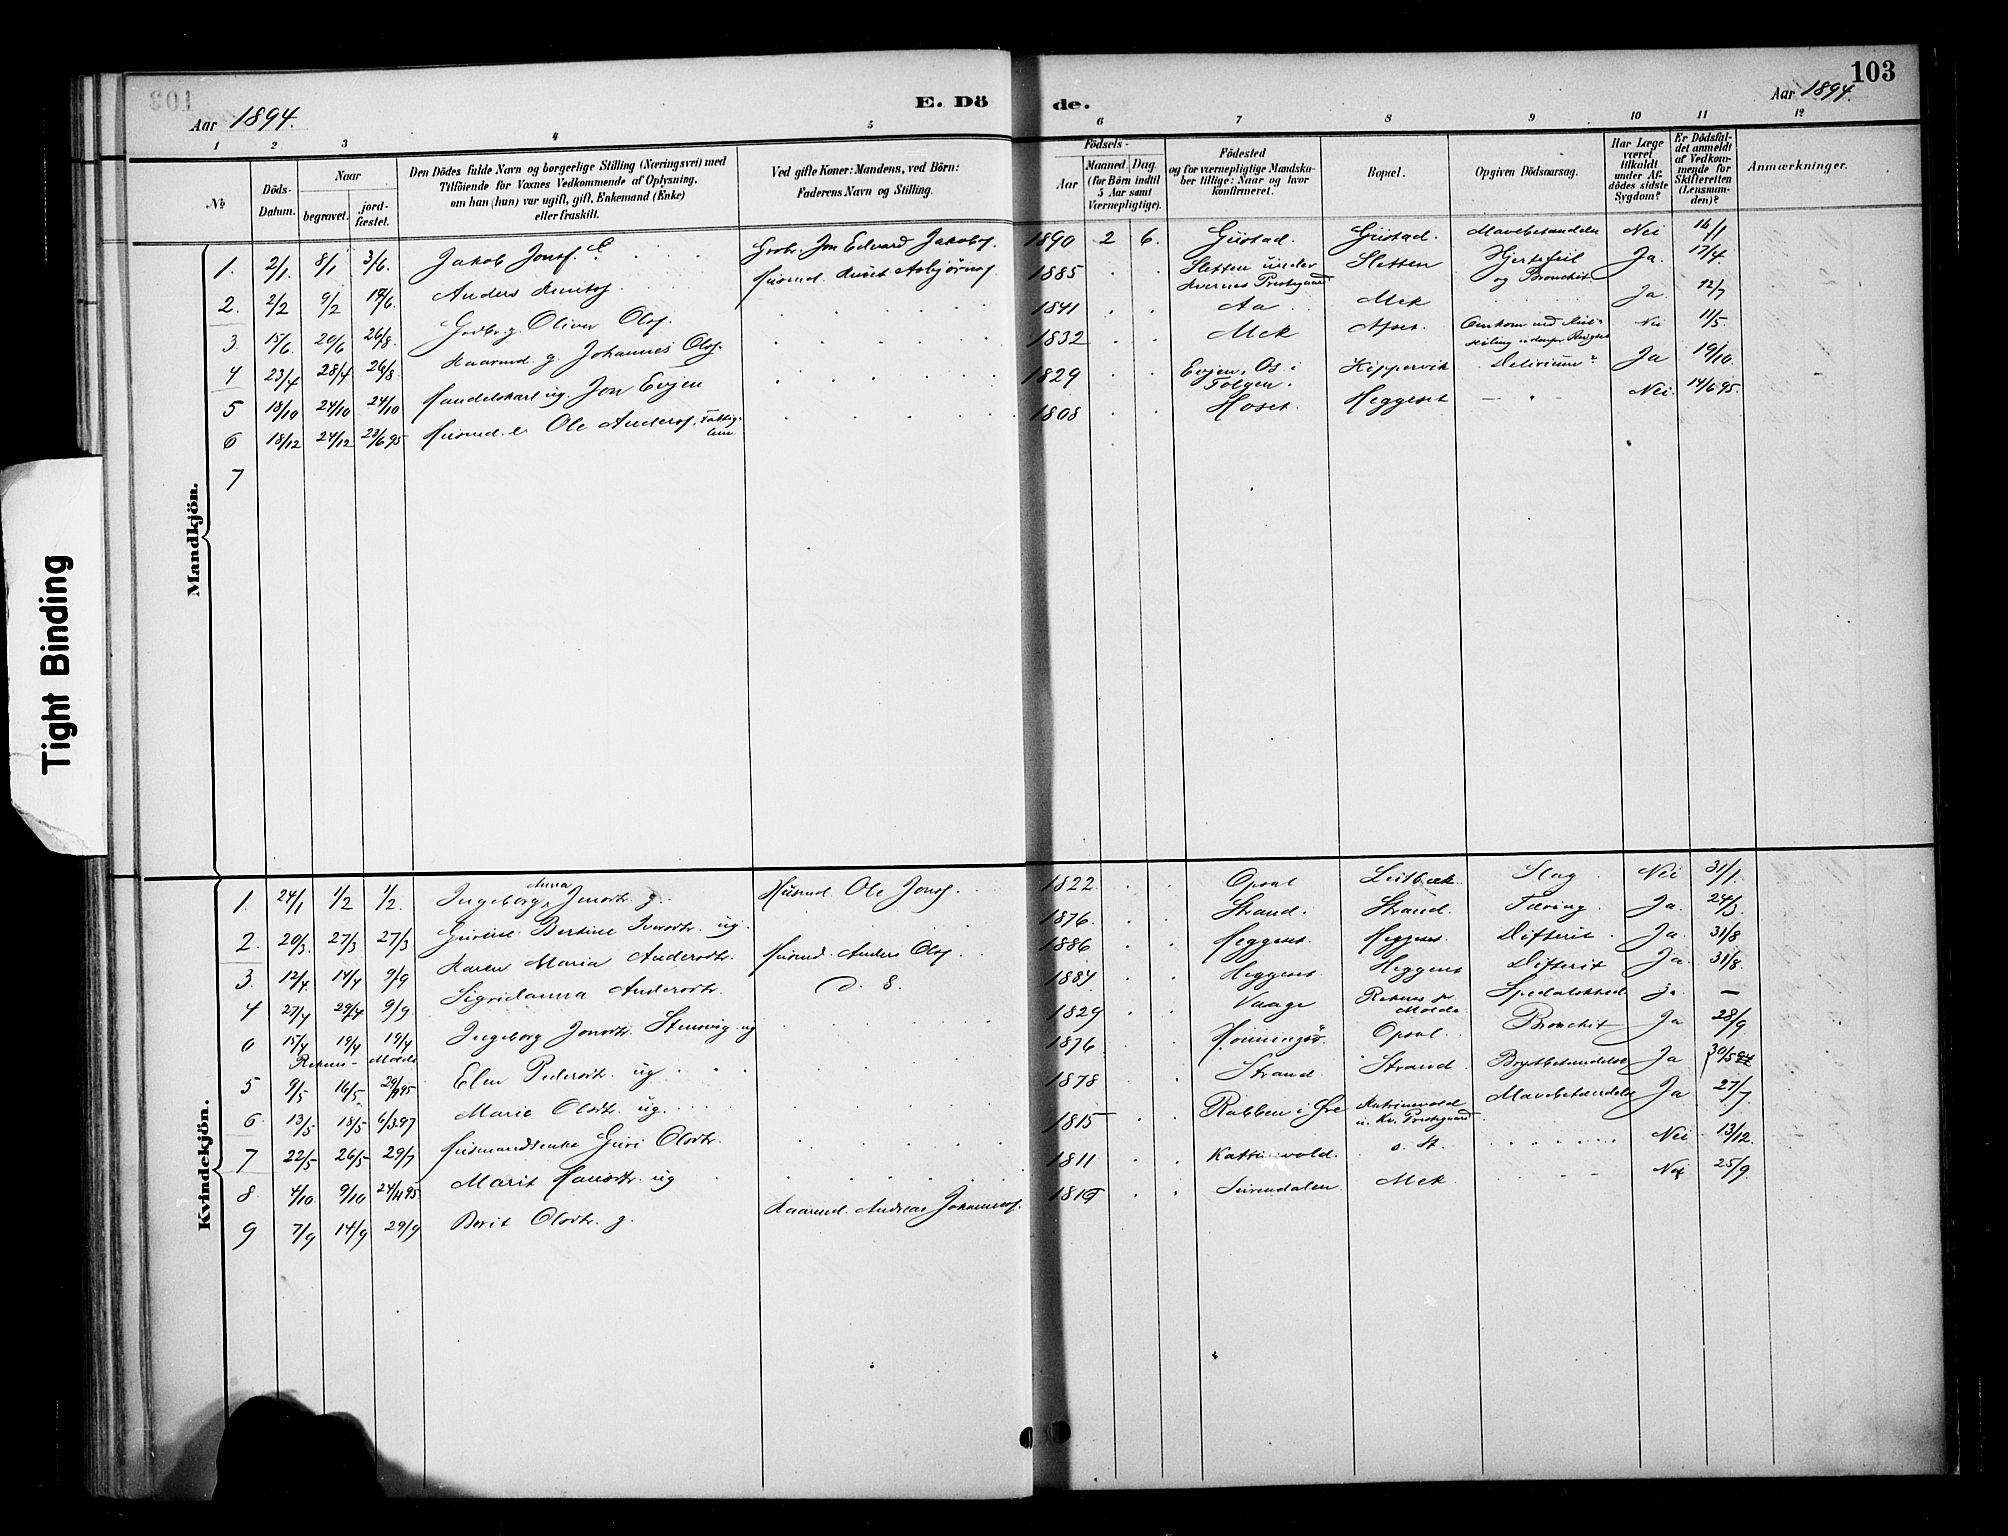 103
E. Dö de.
Aar 1894.
Aar 1894.
1 2 3 4 5 6 7 8 9 10 11 12
No
Döds-Datum.
Naar
begravet.
jord-fæstet.
Den Dödes fulde Navn og borgerlige Stilling (Næringsvei) med
Tilföiende for Voxnes Vedkommende af Oplysning,
om han (hun) var ugift, gift, Enkemand (Enke)
eller fraskilt.
Ved gifte Koner: Mandens, ved Börn:
Faderens Navn og Stilling.
Födsels-
Aar
Maaned Dag.
(for Börn indtil
5 Aar samt
Værnepligtige).
Födested
og for værnepligtige Mandska-
ber tillige: Naar og hvor
konfirmeret.
Bopæl.
Opgiven Dödsaarsag.
Har Læge
været
tilkaldt
under Af-
dödes sidste
Sygdom?
Er Dödsfal-
det anmeldt
af Vedkom-
mende for
Skifteretten
(Lensman-
den)?
Anmærkninger.
Mandkjön.
1. 2/1 8/1 3/6. Jakob Jonss. Grbr. Jon Edvard Jakobs. 1890 2 6. Gustad. Gustad. Mavebetændelse Nei 16/1
2. 2/2 9/2 17/6. Anders Knuts. Husmd. Knut Asbjørns. 1885 Sletten under Kvernes Prestegaard Sletten Hjertefeil og Bronchit Ja. 17/4
3 15/6. 20/6 26/8. Grdbr. g. Oliver Ols. 1841 Aa Mek Ja. 12/7
4 23/4 28/4 26/8 Kaarmd. g. Johannes Ols. 1832 Mek Omkom ved Nei 11/5.
5 18/10 24/10 24/10 Handelskarl ug. Jon Evjen 1829 Evjen, Os i Tolgen. Kippervik Delirium? Ja 19/10.
6 18/12 24/12 23/6 95 Husmd. e. Ole Anders. Fattiglem 1808 Hoset. Heggeset — " — Nei. 14/6 95.
7
Kvindekjön.
1. 24/1 1/2 1/2. Ingeborg Anna Jonsdtr. g. Husmd Ole Jons. 1822 Opsal Leitbæk. Slag Nei 31/1.
2. 20/3. 27/3 27/3 Guruine Bertine Iversdtr. ug. 1876. Strand. Strand. Tæring. Ja. 24/3.
3. 12/4. 14/4 9/9 Karen Maria Andersdtr. Husmd. Anders Ols. 1886 Heggeset. Heggeset. Difterit. Ja. 31/8
4 27/4 29/4 9/9. Sigridanna Andersdtr. d. s. 1884 Heggeset. Heggeset Difterit Ja 31/8.
0 15/4 19/4 19/4 Ingeborg Jonsdtr. Stensvig ug 1829 Vaage Reknes pr Molde Spedalskhed Ja —
Reknes - Molde
5 9/5 16/5. 29/7 95 Elen Pedersdtr. ug 1876 Opsal. Bronchit Ja 28/9
6. 13/5 18/5 6/3 97 Marie Olsdtr. ug. 1878 Strand Strand Brystbetændelse Ja 30/5 94
7 22/5 26/5 29/7 Husmandsenke Guri Olsdtr. 1815 Rabben i Øre Katrinevold u. Kv. Prestegaard Mavebetændelse Ja 27/7
8 4/10 9/10 24/4 95 Marit Hansdtr. ug 1811 Kattrinevold. s. st. Nei 13/12.
9 7/9 14/9 29/9 Berit Olsdtr. g. Kaarmd. Andreas Johanness. Surendalen Mek Nei 25/9
Tight Binding